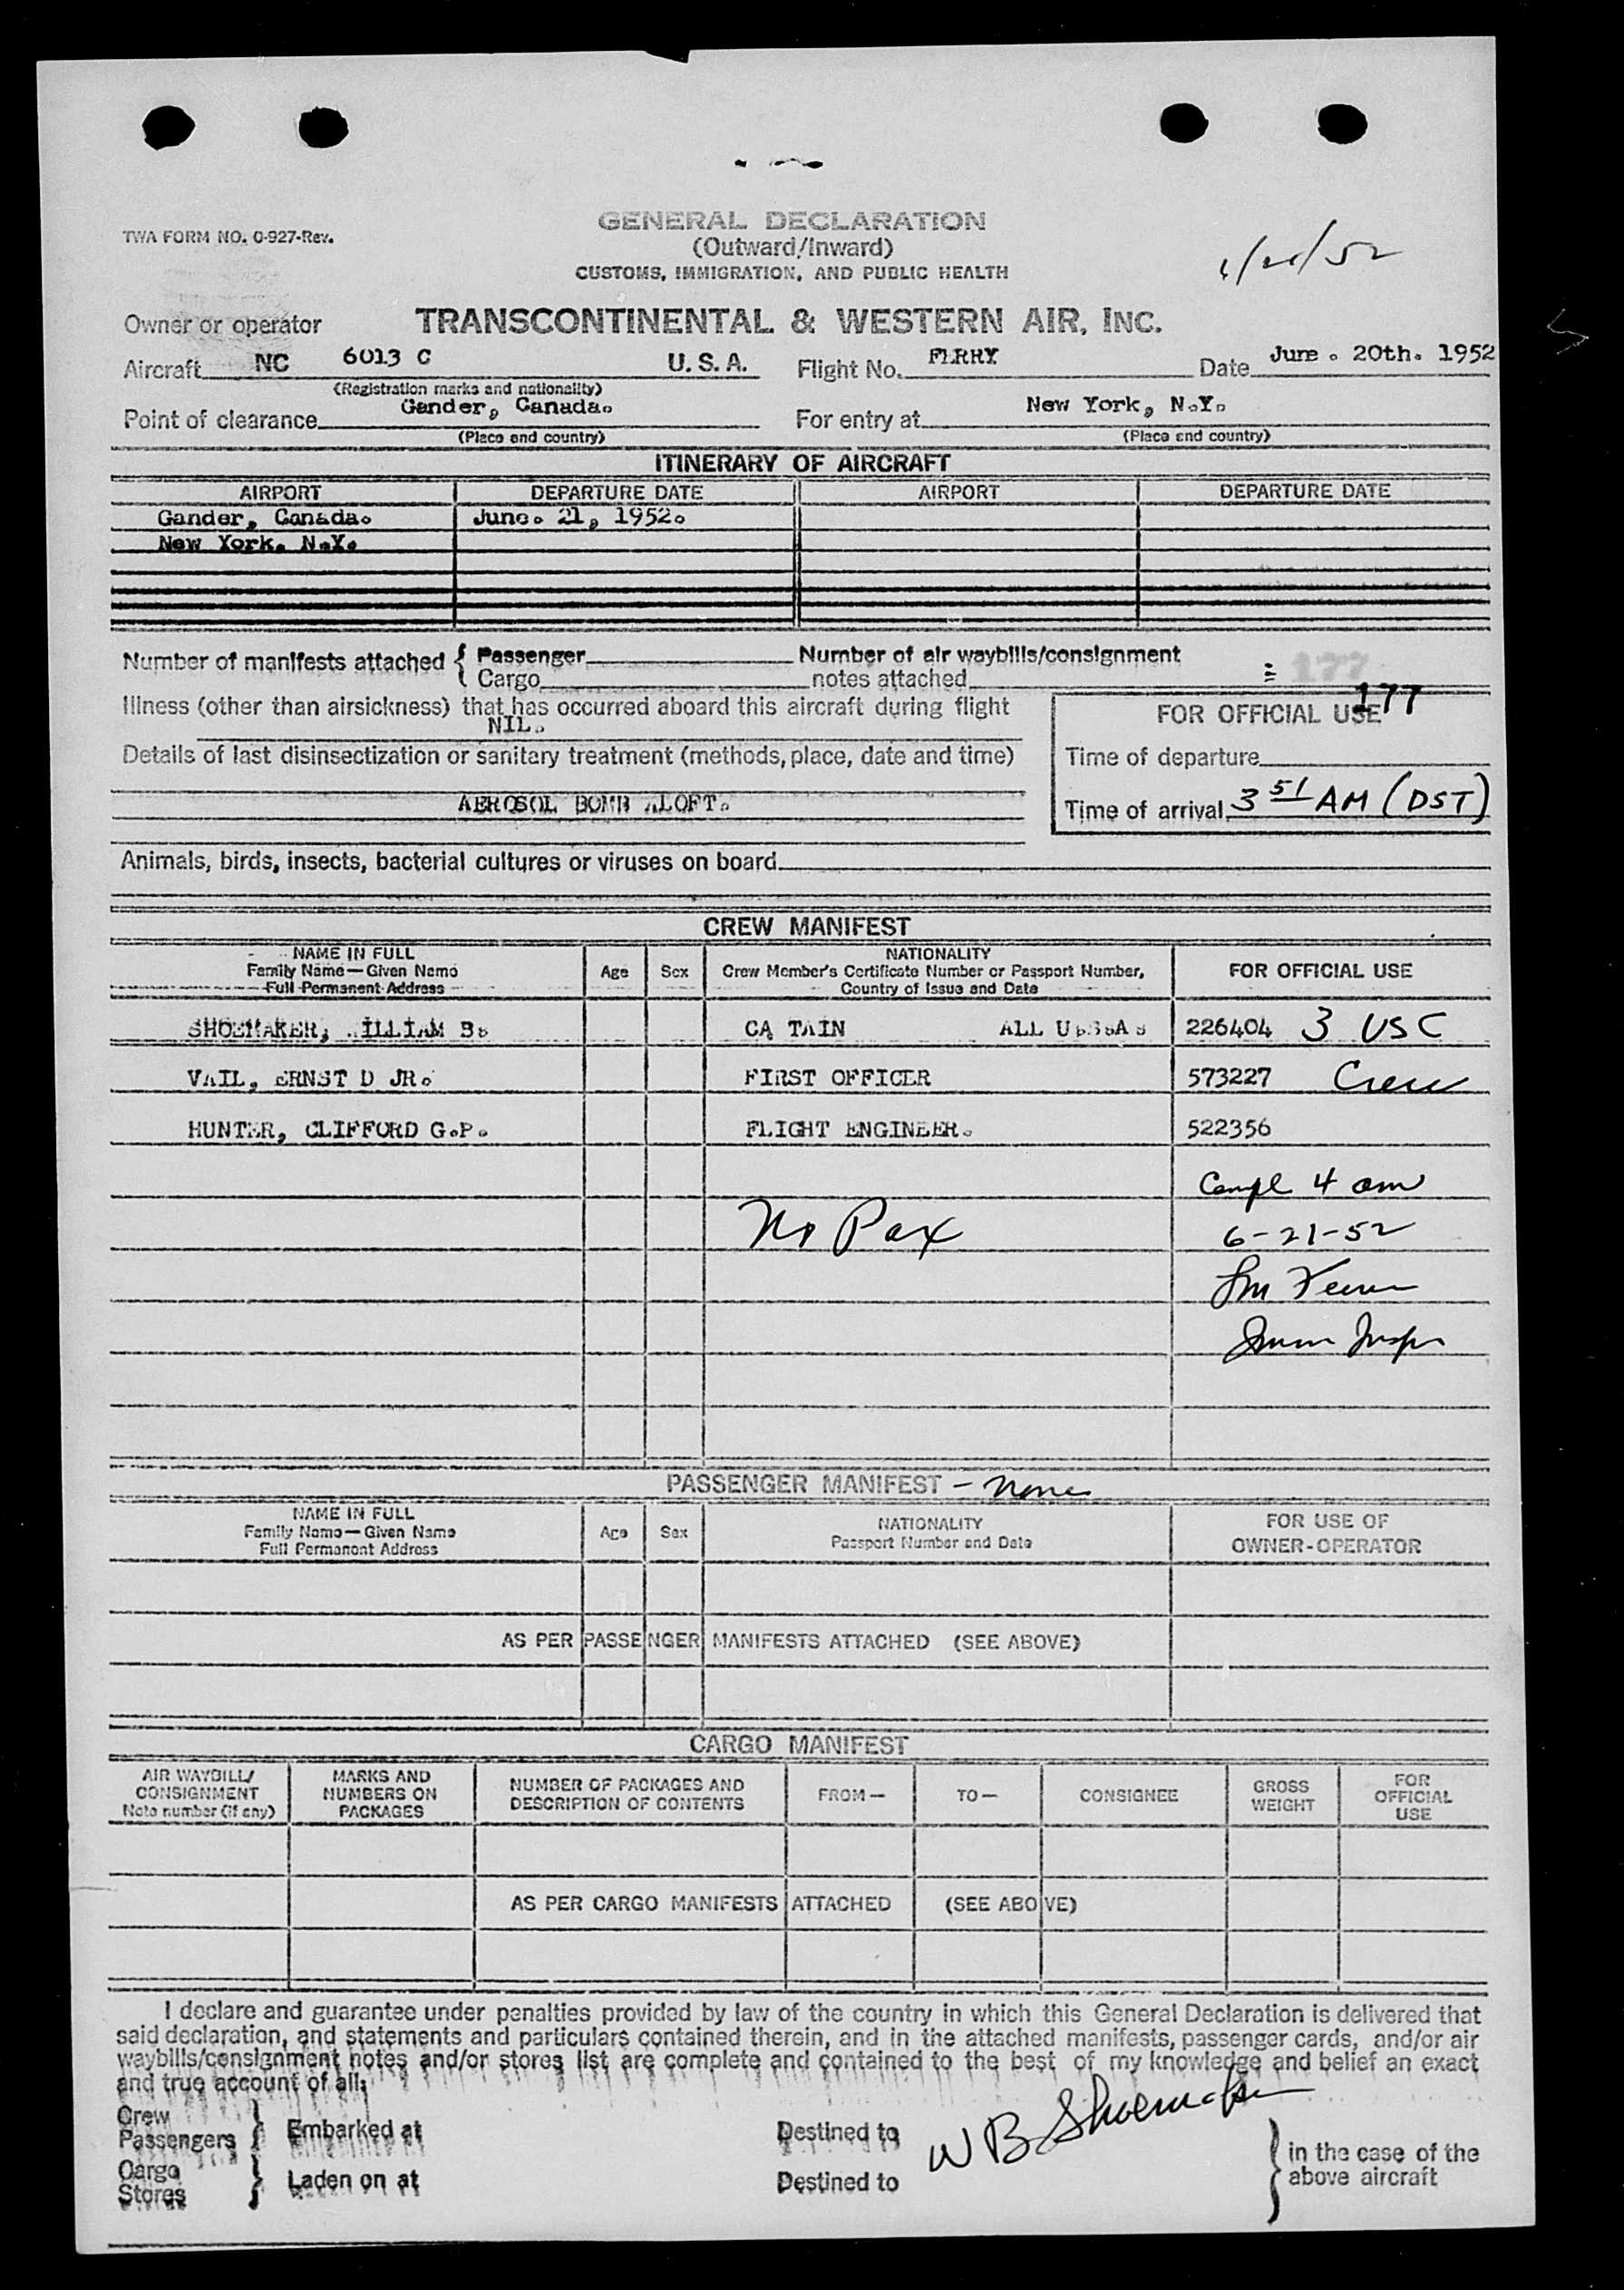 GENERAL DECLARATION
TWA FORM NO. O-927-Rev.
(Outward/Inward)
CUSTOMS, IMMIGRATION, AND PUBLIC HEALTH
Owner or operator TRANSCONTINENTAL & WESTERN AIR, INC.
Aircraft NC 6013 C U.S.A. Flight No. FERRY Date June. 20th. 1952
(Registration marks and nationality)
Point of clearance Gander, Canada. For entry at New York, N.Y.
(Place and country) (Place and country)
ITINERARY OF AIRCRAFT
AIRPORT DEPARTURE DATE AIRPORT DEPARTURE DATE
Gander, Canada. June. 21, 1952.
New York. N.Y.
Number of manifests attached { Passenger Number of air waybills/consignment
Cargo notes attached
177
177
Illness (other than airsickness) that has occurred aboard this aircraft during flight
NIL.
FOR OFFICIAL USE
Details of last disinsectization or sanitary treatment (methods, place, date and time)
Time of departure
AEROSOL BOMB ALOFT.
Time of arrival 3 51 AM (DST)
Animals, birds, insects, bacterial cultures or viruses on board
CREW MANIFEST
NAME IN FULL
Family Name—Given Name
Full Permanent Address
Age Sex
NATIONALITY
Crew Member's Certificate Number or Passport Number,
Country of Issue and Date
FOR OFFICIAL USE
SHOEMAKER, ILLIAM B. CA TAIN ALL U.S.A. 226404 3 USC
VAIL, ERNST D JR. FIRST OFFICER 573227 Crew
HUNTER, CLIFFORD G.P. FLIGHT ENGINEER. 522356
Compl 4 am
No Pax 6-21-52
Immn Inspr
PASSENGER MANIFEST - None
NAME IN FULL
Family Name—Given Name
Full Permanent Address
Age Sex
NATIONALITY
Passport Number and Date
FOR USE OF
OWNER-OPERATOR
AS PER PASSENGER MANIFESTS ATTACHED (SEE ABOVE)
CARGO MANIFEST
AIR WAYBILL/
CONSIGNMENT
Note number (if any)
MARKS AND
NUMBERS ON
PACKAGES
NUMBER OF PACKAGES AND
DESCRIPTION OF CONTENTS
FROM—
TO—
CONSIGNEE
GROSS
WEIGHT
FOR
OFFICIAL
USE
AS PER CARGO MANIFESTS ATTACHED (SEE ABOVE)
I declare and guarantee under penalties provided by law of the country in which this General Declaration is delivered that
said declaration, and statements and particulars contained therein, and in the attached manifests, passenger cards, and/or air
waybills/consignment notes and/or stores list are complete and contained to the best of my knowledge and belief an exact
and true account of all:
Crew
Passengers } Embarked at Destined to
W B Shoemaker
Cargo
Stores } Laden on at Destined to
} in the case of the
above aircraft